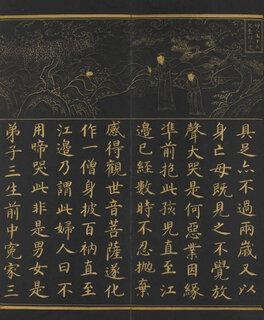 具足亦不過兩歲又以
身亡母既見之不覺放
聲大哭是何惡業因緣
準前抱此孩兒直至江
邊已經數時不忍拋棄
感得觀世音菩薩遂化
作一僧身披百衲直至
江邊乃謂此婦人曰不
用啼哭此非是男女是
弟子三生前中冤家三